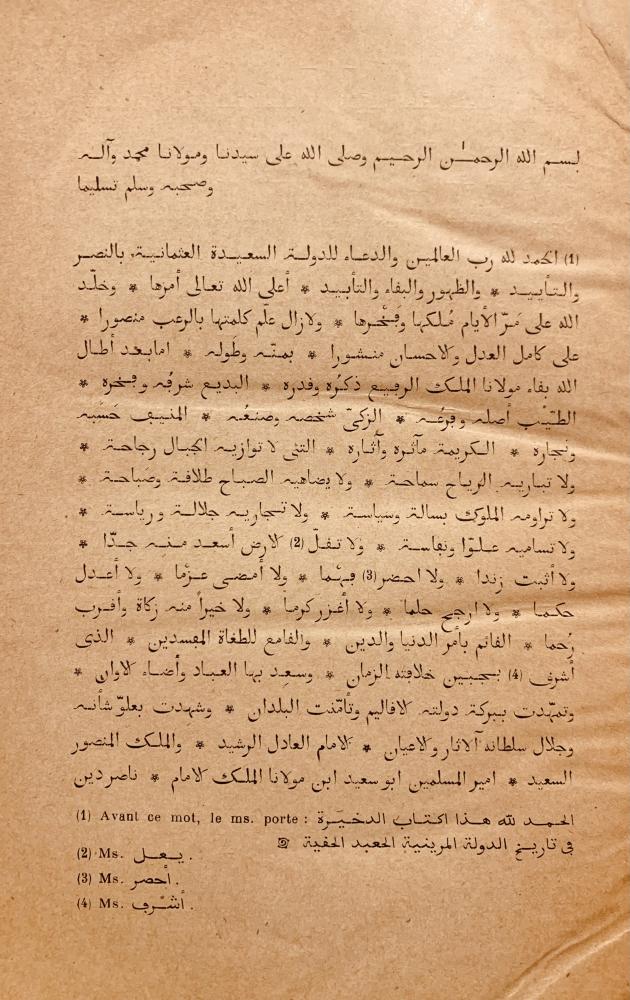 بسم الله الرحمٰن الرحيم وصلى الله على سيدنا ومولانا محمد وآله
وصحبه وسلم تسليما
(1) الحمد لله رب العالمين والدعاء للدولة السعيدة العثمانية، بالنصر
والتأييد * والظهور والبقاء والتأبيد * أعلى الله تعالى أمرها * وخلّد
الله على مَرّ الأيام مُلكها وفخرها * ولازال علَم كلمتها بالرعب منصورا *
على كامل العدل والاحسان منشورا * بمنّه وطَوله * امابعد أطال
الله بقاء مولانا الملك الرفيع ذكرُه وقدره * البديع شرفُه وفخره *
الطيّب أصله وفرعُه * الزكىّ شخصه وصنعُه * المنيف حَسَبه
ونجاره * الكريمة مآثره وآثاره * التى لا توازيه الجبال رجاحة *
ولا تباريه الرياح سماحة * ولا يضاهيه الصباح طلاقة وصباحة *
ولا تراومه الملوك بسالة وسياسة * ولا تجاريه جلالة ورياسة *
ولا تساميه علوّا ونفاسة * ولا تقلّ (2) الارض أسعد منه جدّا *
ولا أثبت زندا * ولا احضر (3) فهْما * ولا أمضى عزْما * ولا أعدل
حكما * ولا ارجح حلما * ولا أغزر كرما * ولا خيراً منه زكاة وأقرب
رُحما * القائم بأمر الدنيا والدين * والقامع للطغاة المفسدين * الذى
أشرق (4) بجبين خلافته الزمان * وسعد بها العباد وأضاء الاوان *
وتمهّدت ببركة دولته الاقاليم وتأمّنت البلدان * وشهدت بعلوّ شأنه
وجلال سلطانه الآثار والاعيان * الامام العادل الرشيد * والملك المنصور
السعيد * امير المسلمين ابو سعيد ابن مولانا الملك الامام * ناصر دين
(1) Avant ce mot, le ms. porte : الحمد لله هذا اكتاب الدخيرة
فى تاريخ الدولة المرينية الحفية
(2) Ms. يعل .
(3) Ms. أحصر .
(4) Ms. أشرف .